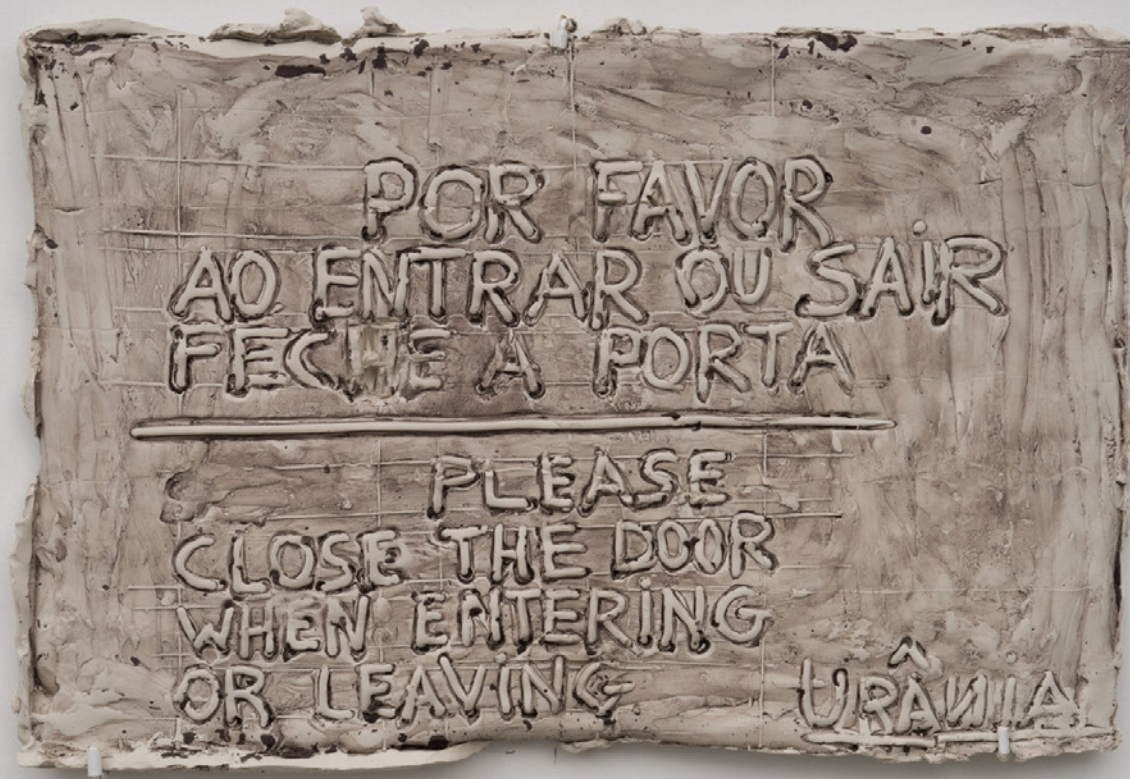 POR FAVOR
AO ENTRAR OU SAIR
FECHE A PORTA
PLEASE
CLOSE THE DOOR
WHEN ENTERING
OR LEAVING
URÂNIA